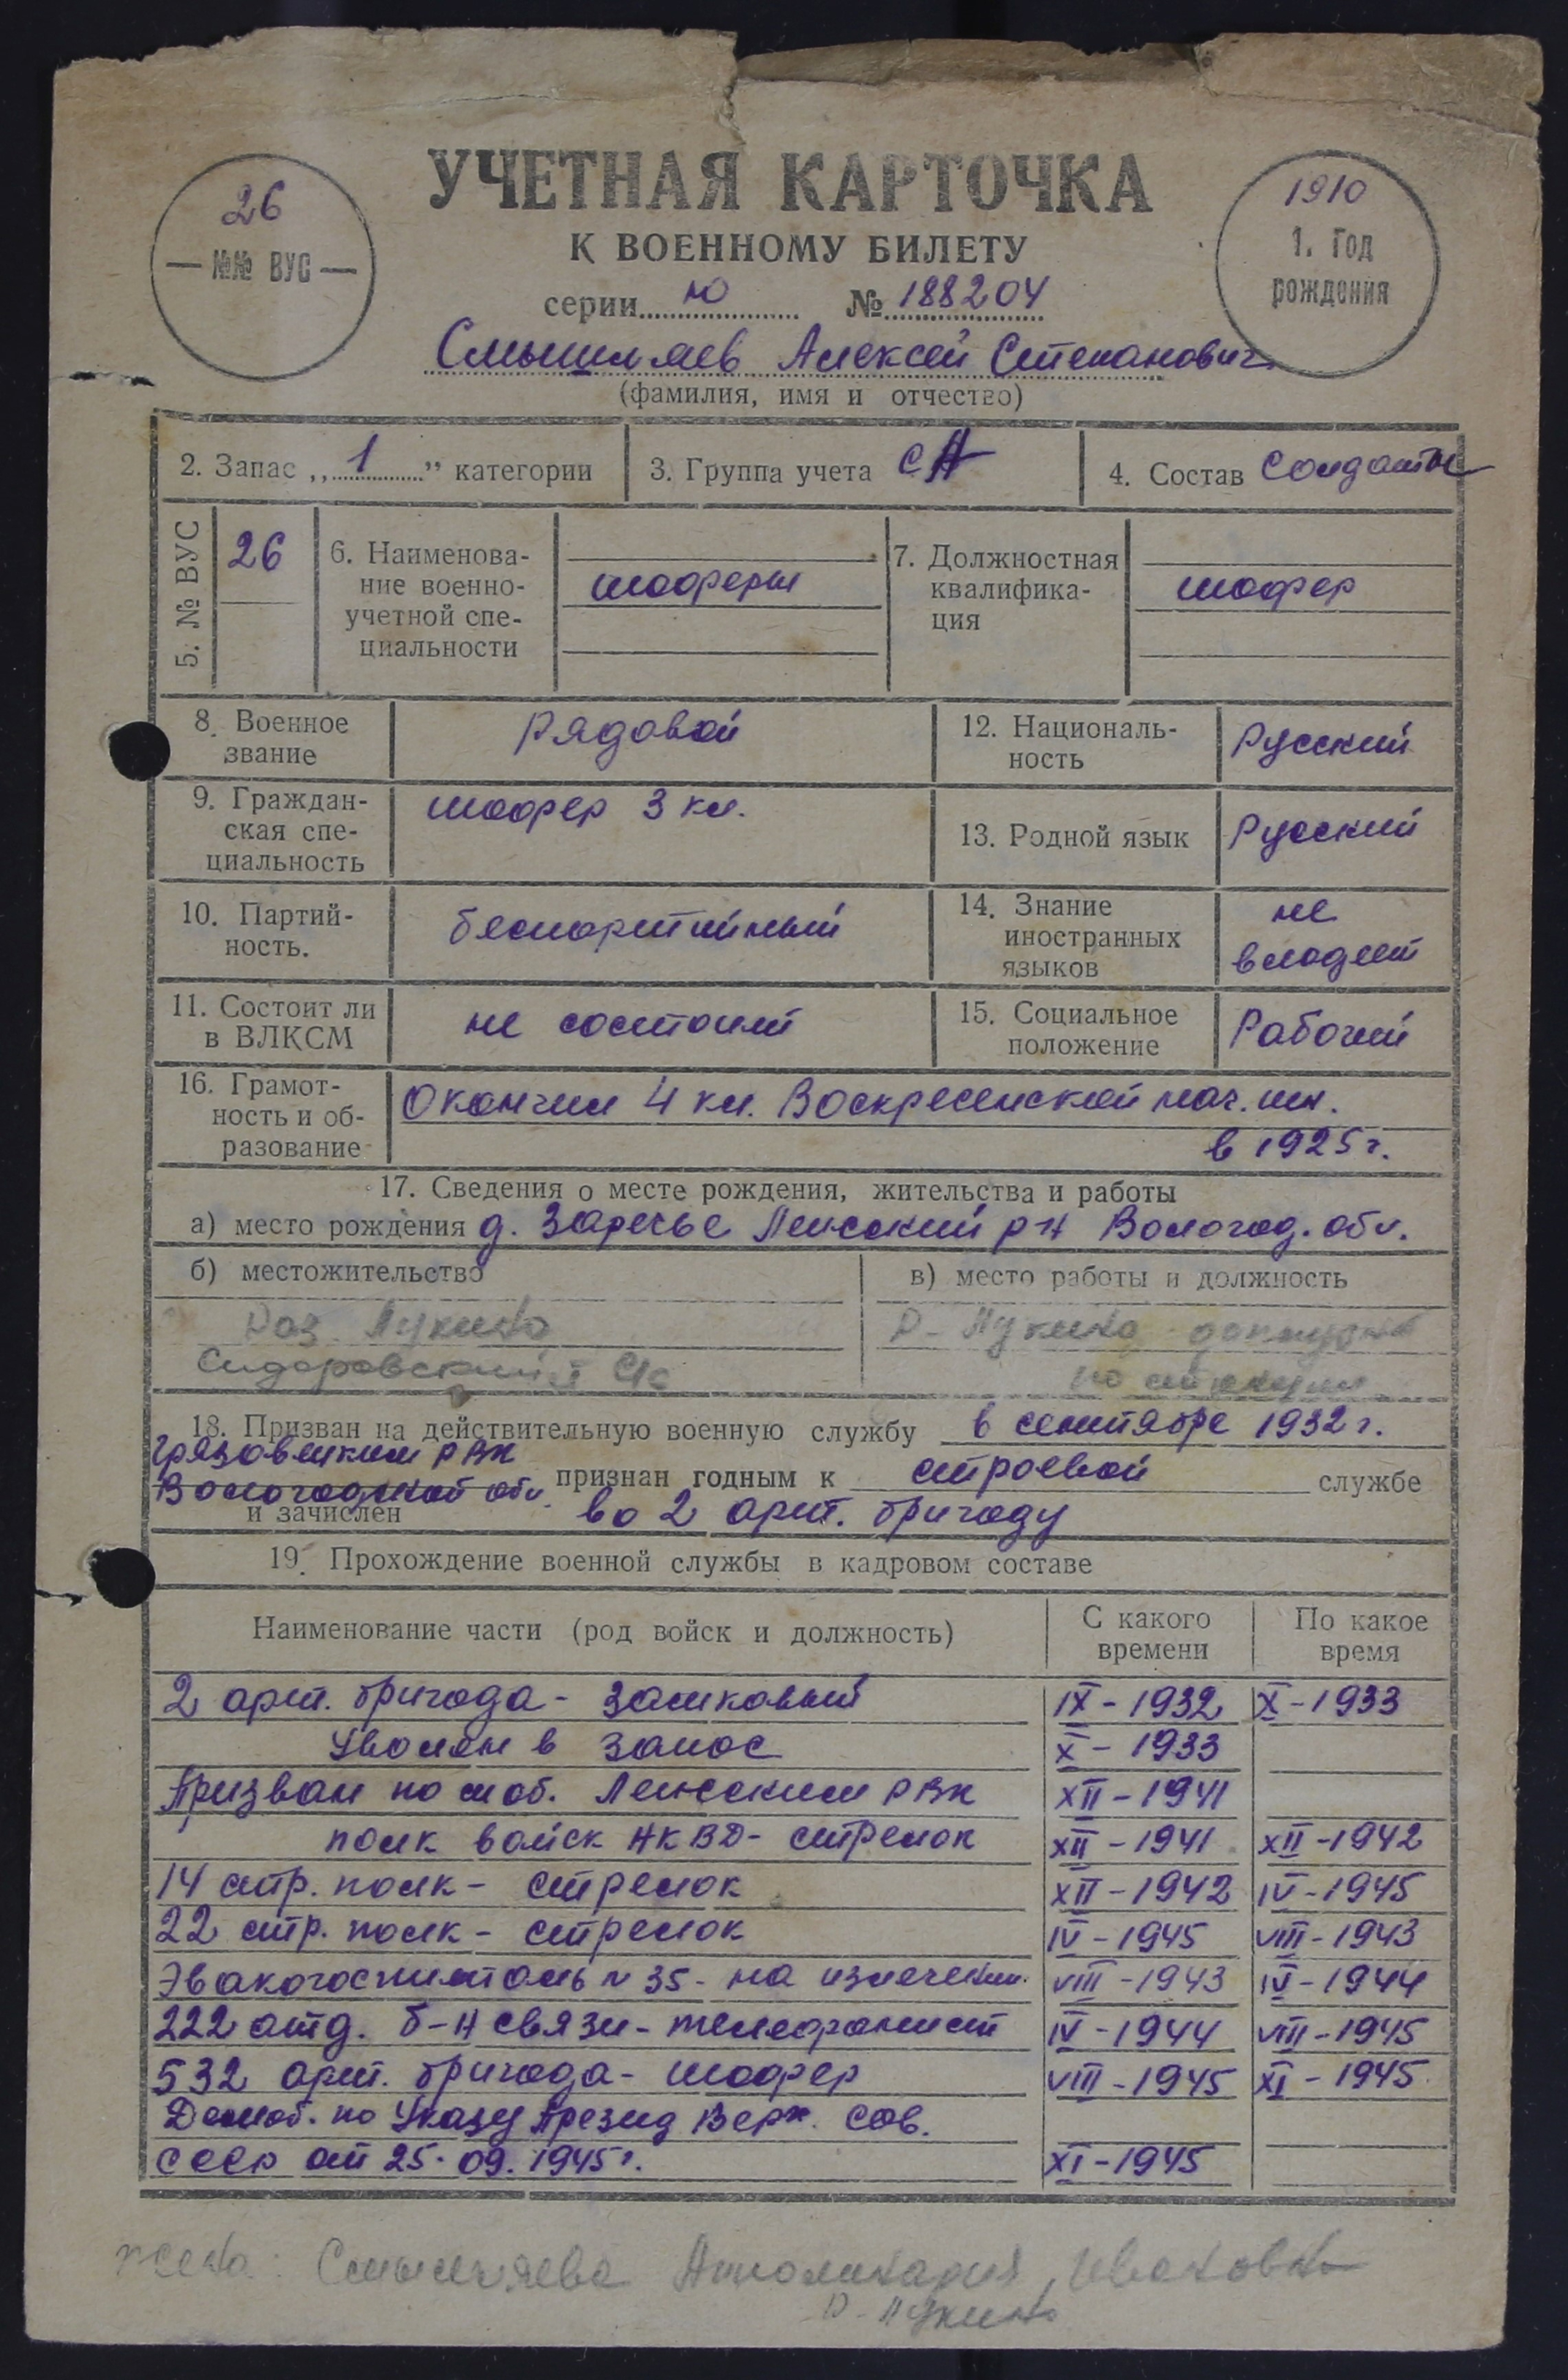 УЧЕТНАЯ КАРТОЧКА
К ВОЕННОМУ БИЛЕТУ
26
№№ ВУС
1910
1. Год
рождения
серии Ю № 188204
Смышляев Алексей Степанович
(фамилия, имя и отчество)
2. Запас „1” категории
3. Группа учета СА
4. Состав Солдаты
5. № ВУС
26
6. Наименова-
ние военно-
учетной спе-
циальности
шоферы
7. Должностная
квалифика-
ция
шофер
8. Военное
звание
Рядовой
12. Националь-
ность
Русский
9. Граждан-
ская спе-
циальность
шофер 3 кл.
13. Родной язык
Русский
10. Партий-
ность.
беспартийный
14. Знание
иностранных
языков
не
владеет
11. Состоит ли
в ВЛКСМ
не состоит
15. Социальное
положение
Рабочий
16. Грамот-
ность и об-
разование
Окончил 4 кл. Воскресенской нач. шк.
в 1925 г.
17. Сведения о месте рождения, жительства и работы
а) место рождения д. Заречье Лежский р-н Вологод. обл.
б) местожительство
Раз. Лукино
Сидоровский с/с
в) место работы и должность
Р- Лукино
по станции
18. Призван на действительную военную службу в сентябре 1932 г.
Грязовецким РВК
Вологодской обл. признан годным к строевой службе
и зачислен во 2 арт. бригаду
19. Прохождение военной службы в кадровом составе
Наименование части (род войск и должность)
С какого
времени
По какое
время
2 арт. бригада - замковый IX-1932 X-1933
Уволен в запас X-1933
Призван по моб. Лежским РВК XII-1941
полк войск НКВД - стрелок XII-1941 XII-1942
14 стр. полк - стрелок XII-1942 IV-1945
22 стр. полк - стрелок IV-1945 VIII-1943
Эвакогоспиталь № 35 - на излечении. VIII-1943 IV-1944
222 отд. б-н связи - телефонист IV-1944 VIII-1945
532 арт. бригада - шофер VIII-1945 XI-1945
Демоб. по Указу Презид Верх. Сов.
СССР от 25.09.1945 г. XI-1945
жена: Смышляева Апполинария Ивановна
Р- Лукино